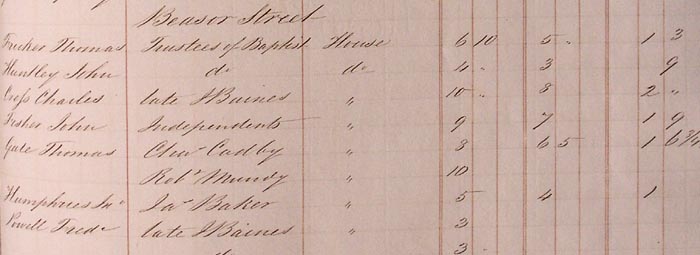 Beasor Street
Trucker Thomas Trustees of Baptist House 6 10 5 " 1 3
Huntley John do do 4 " 3 9
Cross Charles late J Baines " 10 " 3 2 "
Fisher John Independents " 9 7 1 9
Gale Thomas Chas Cadby " 3 6 5 1 6 3/4
Robt Mundy " 10
Humphries Jno Jas Baker " 5 4 1
Powell Fredk late J Baines " 3
do 3